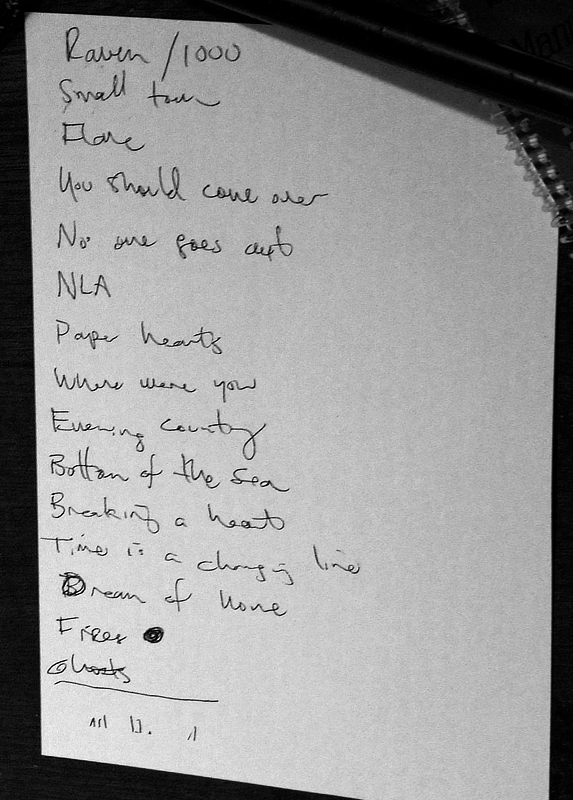 Raven /1000
Small town
Flare
You should come over
No one goes out
NLA
Paper hearts
Where were you
Evening country
Bottom of the Sea
Breaking a heart
Time is a changing line
Dream of home
Fires
Ghosts
Man